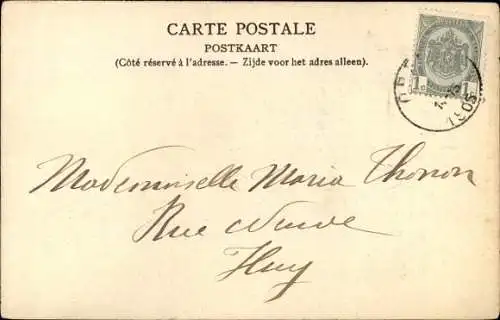 CARTE POSTALE
POSTKAART
(Côté réservé à l'adresse. — Zijde voor het adres alleen).
1 1
1905
Mademoiselle Maria Thonon
Rue Neuve
Huy